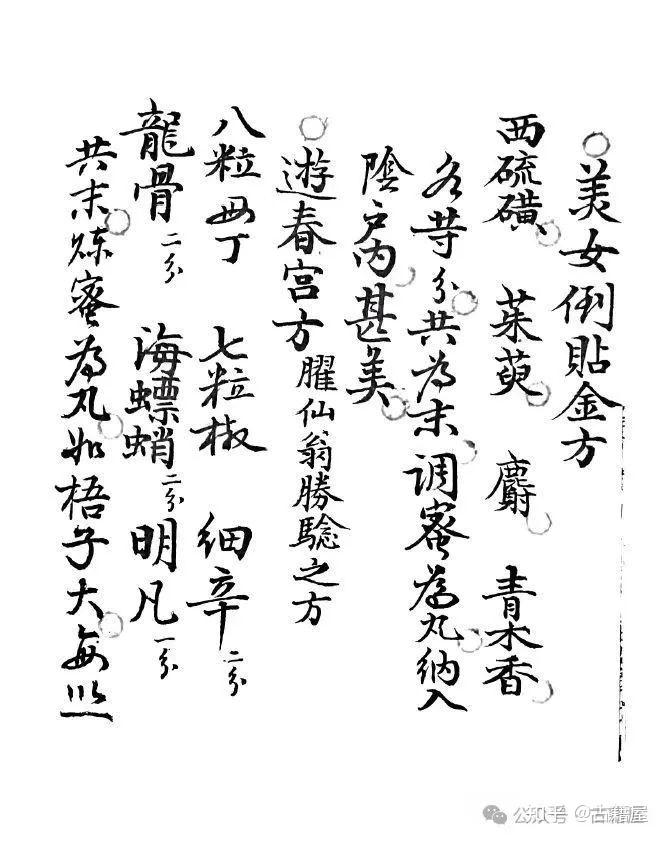 ○美女倒貼金方
西硫磺 茱萸 麝 青木香
各等分共為末调蜜為丸纳入
陰户内甚美
○遊春宫方 臞仙翁勝騐之方
八粒母丁 七粒椒 细辛二分
龍骨二分 海螵蛸二分 明凡一分
共末炼蜜為丸如梧子大每以一
公众号@古籍屋